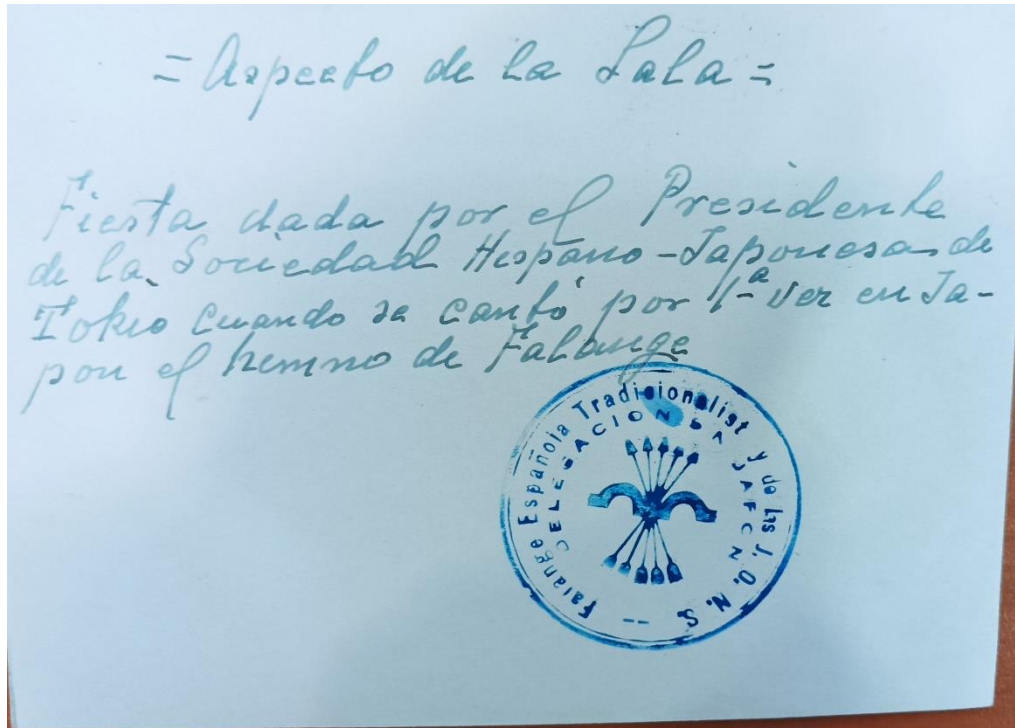 = Aspecto de la Sala =
Fiesta dada por el Presidente
de la Sociedad Hispano-Japonesa de
Tokio cuando se cantó por 1ª vez en Ja-
pon el himno de Falange
Falange Española Tradicionalist y de las J. O. N. S. --
DELEGACION JAPON